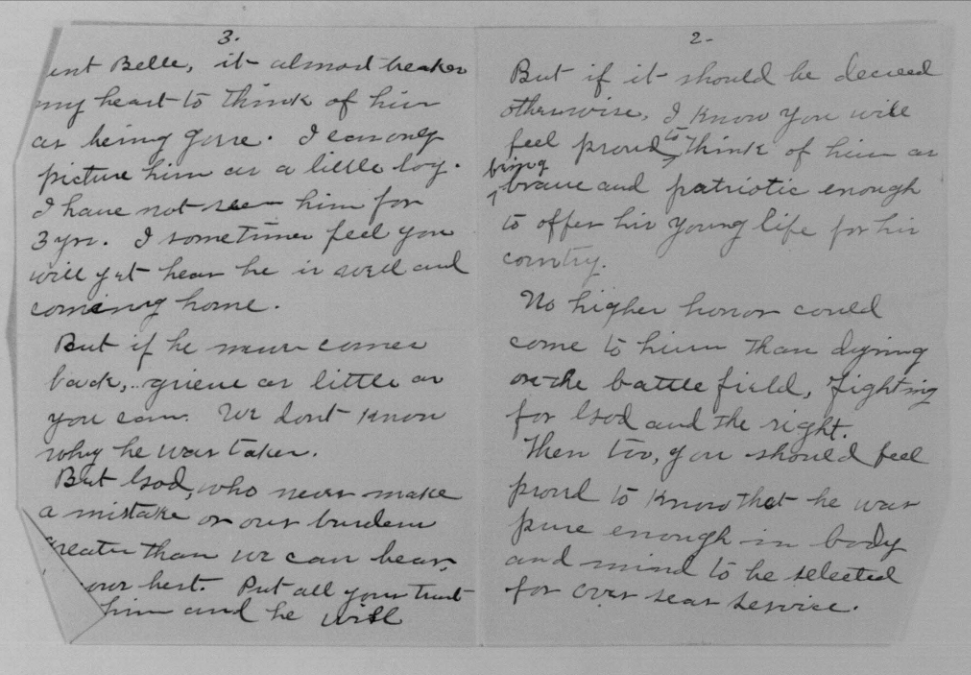 3.
unt Belle, it almost breakes
my heart to think of him
as being gone. I can only
picture him as a little boy.
I have not seen him for
3 yrs. I sometimes feel you
will yet hear he is well and
coming home.
But if he never comes
back, grieve as little as
you can. We dont know
why he was taken.
But God, who never make
a mistake or our burdens
greater than we can bear,
our best. Put all your trust
him and he will
2-
But if it should be decreed
otherwise, I know you will
feel proud to think of him as
being brave and patriotic enough
to offer his young life for his
country.
No higher honor could
come to him than dying
on the battle field, fighting
for God and the right.
Then too, you should feel
proud to know that he was
pure enough in body
and mind to be selected
for over seas service.